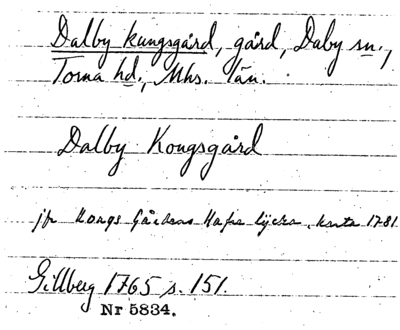 Dalby kungsgård, gård, Daby sn.,
Torna hd., Mhs. län.
Dalby Kongsgård
jfr Kongs Gårdens Hafre lycka, karta 1781
Gillberg 1765 s. 151.
Nr 5834.